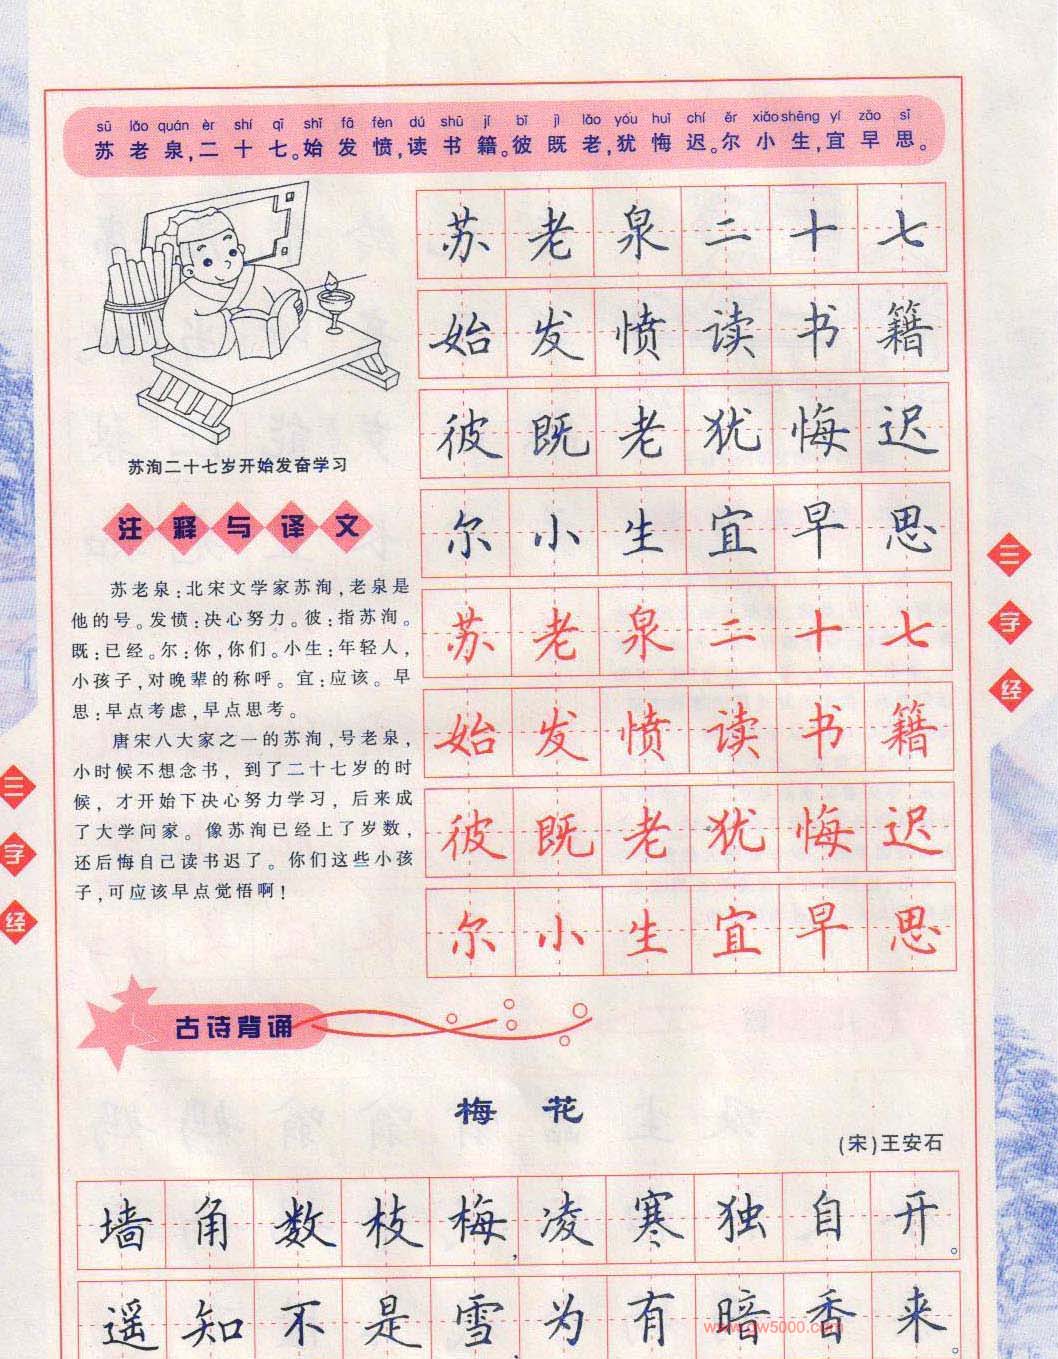 sū lǎo quán èr shí qī shǐ fā fèn dú shū jí bǐ jì lǎo yóu huǐ chí ěr xiǎo shēng yí zǎo sī
苏老泉,二十七。始发愤,读书籍。彼既老,犹悔迟。尔小生,宜早思。
苏老泉二十七
始发愤读书籍
彼既老犹悔迟
尔小生宜早思
苏老泉二十七
始发愤读书籍
彼既老犹悔迟
尔小生宜早思
苏洵二十七岁开始发奋学习
注释与译文
苏老泉:北宋文学家苏洵,老泉是
他的号。发愤:决心努力。彼:指苏洵。
既:已经。尔:你,你们。小生:年轻人,
小孩子,对晚辈的称呼。宜:应该。早
思:早点考虑,早点思考。
唐宋八大家之一的苏洵,号老泉,
小时候不想念书,到了二十七岁的时
候,才开始下决心努力学习,后来成
了大学问家。像苏洵已经上了岁数,
还后悔自己读书迟了。你们这些小孩
子,可应该早点觉悟啊!
三字经
三字经
古诗背诵
梅花
(宋)王安石
墙角数枝梅,凌寒独自开。
遥知不是雪,为有暗香来。
www.gw5000.com